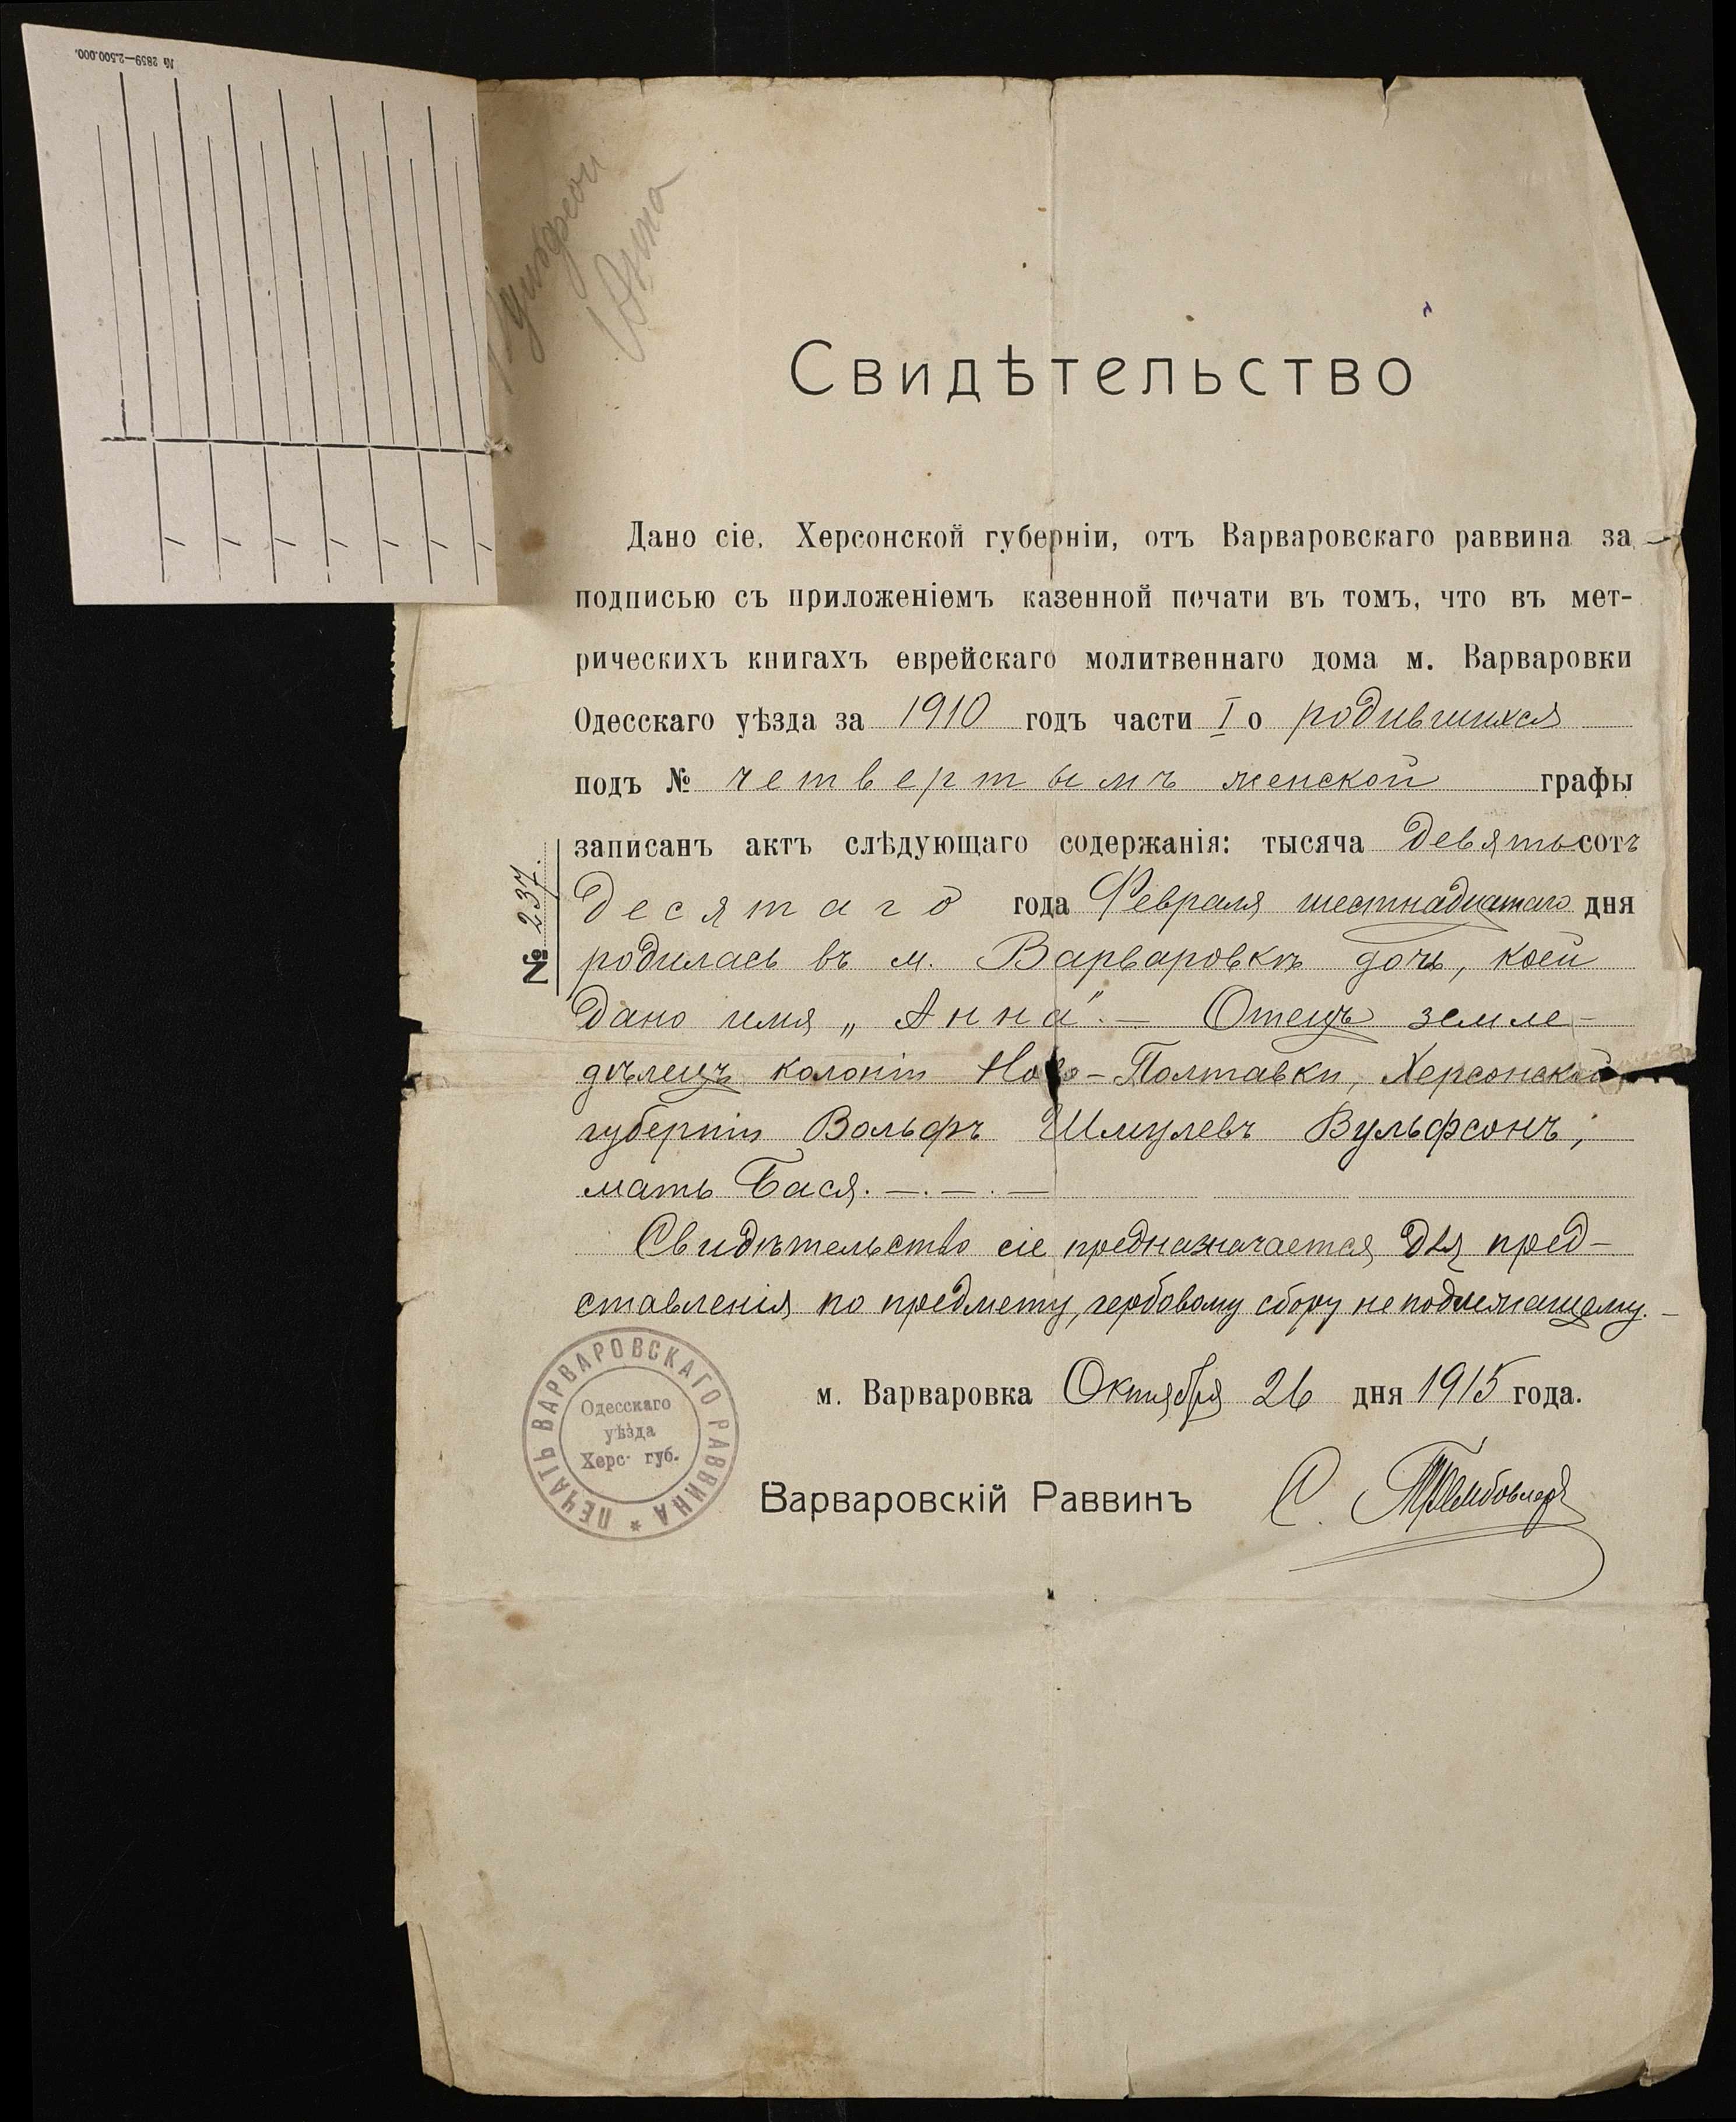 № 2859—2.500.000.
Свидѣтельство
Дано сіе, Херсонской губерніи, отъ Варваровскаго раввина за
подписью съ приложеніемъ казенной печати въ томъ, что въ мет-
рическихъ книгахъ еврейскаго молитвеннаго дома м. Варваровки
Одесскаго уѣзда за 1910 годъ части I о родившихся
подъ № четвертымъ женской графы
записанъ актъ слѣдующаго содержанія: тысяча девятьсотъ
десятаго года Февраля шестнадцатаго дня
родилась въ м. Варваровкѣ дочь, коей
дано имя „Анна“.— Отецъ земле-
дѣлецъ колоніи Ново-Полтавки, Херсонской
губерніи Вольфъ Шмулевъ Вульфсонъ,
мать Бася. —.—.—
Свидѣтельство сіе предназначается для пред-
ставленія по предмету, гербовому сбору не подлежащему.—
м. Варваровка Октября 26 дня 1915 года.
Варваровскій Раввинъ С.
№ 237.
ПЕЧАТЬ ВАРВАРОВСКАГО РАВВИНА *
Одесскаго
уѣзда
Херс. губ.